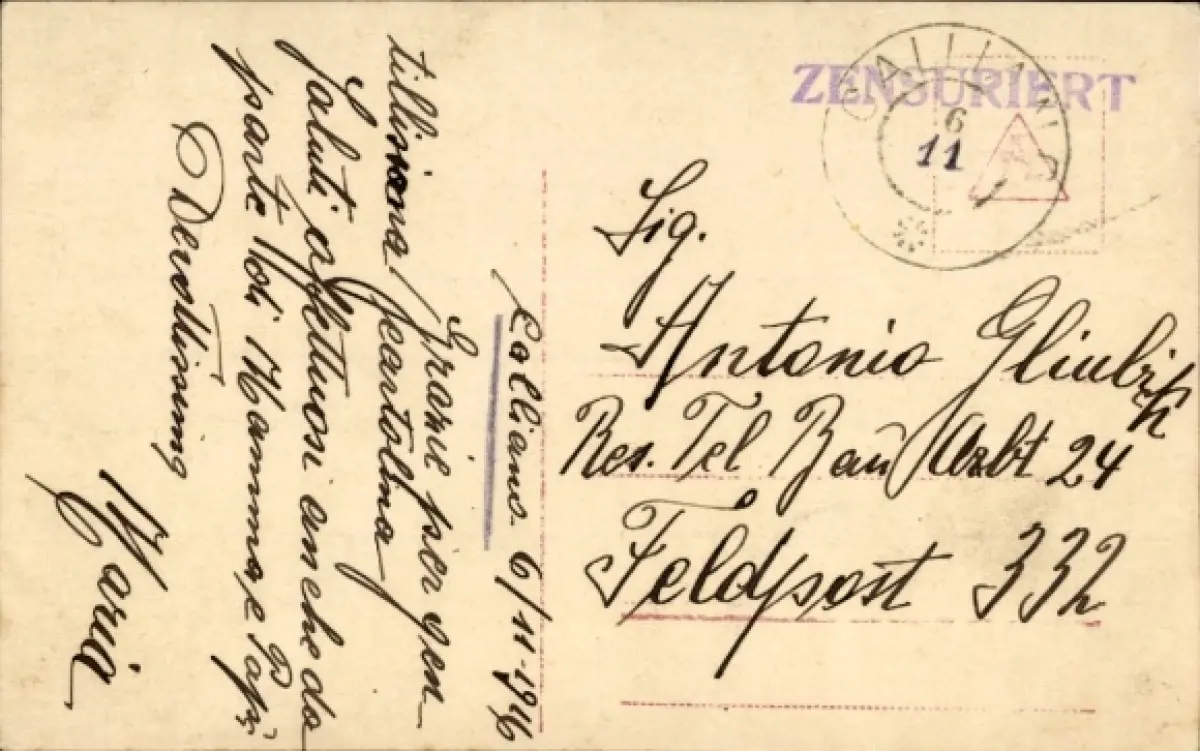 Calliano 6/11-1916
Grazie per gen
tillissima cartolina
Saluti affettuosi anche da
parte di Mamma e Papà
Devottissima
Maria
ZENSURIERT
CALLIANO
6
11
Sig.
Antonio
Res. Tel Bau Arbt 24
Feldpost 332